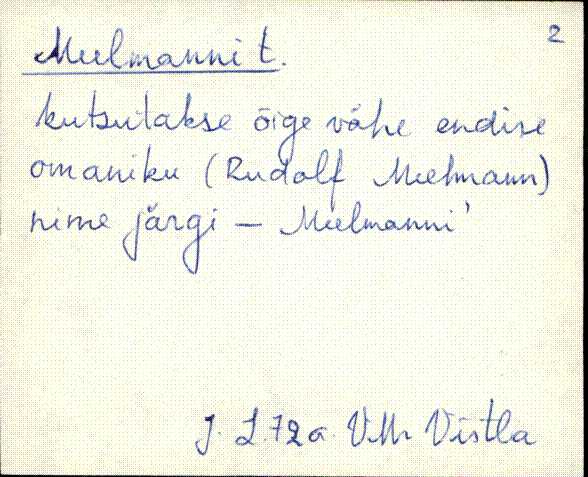 2
Meelmanni t.
kutsutakse õige vähe endise
omaniku (Rudolf Meelmann)
nime järgi – Meelmanni'
J. L. 72 a. V-Mr Vistla